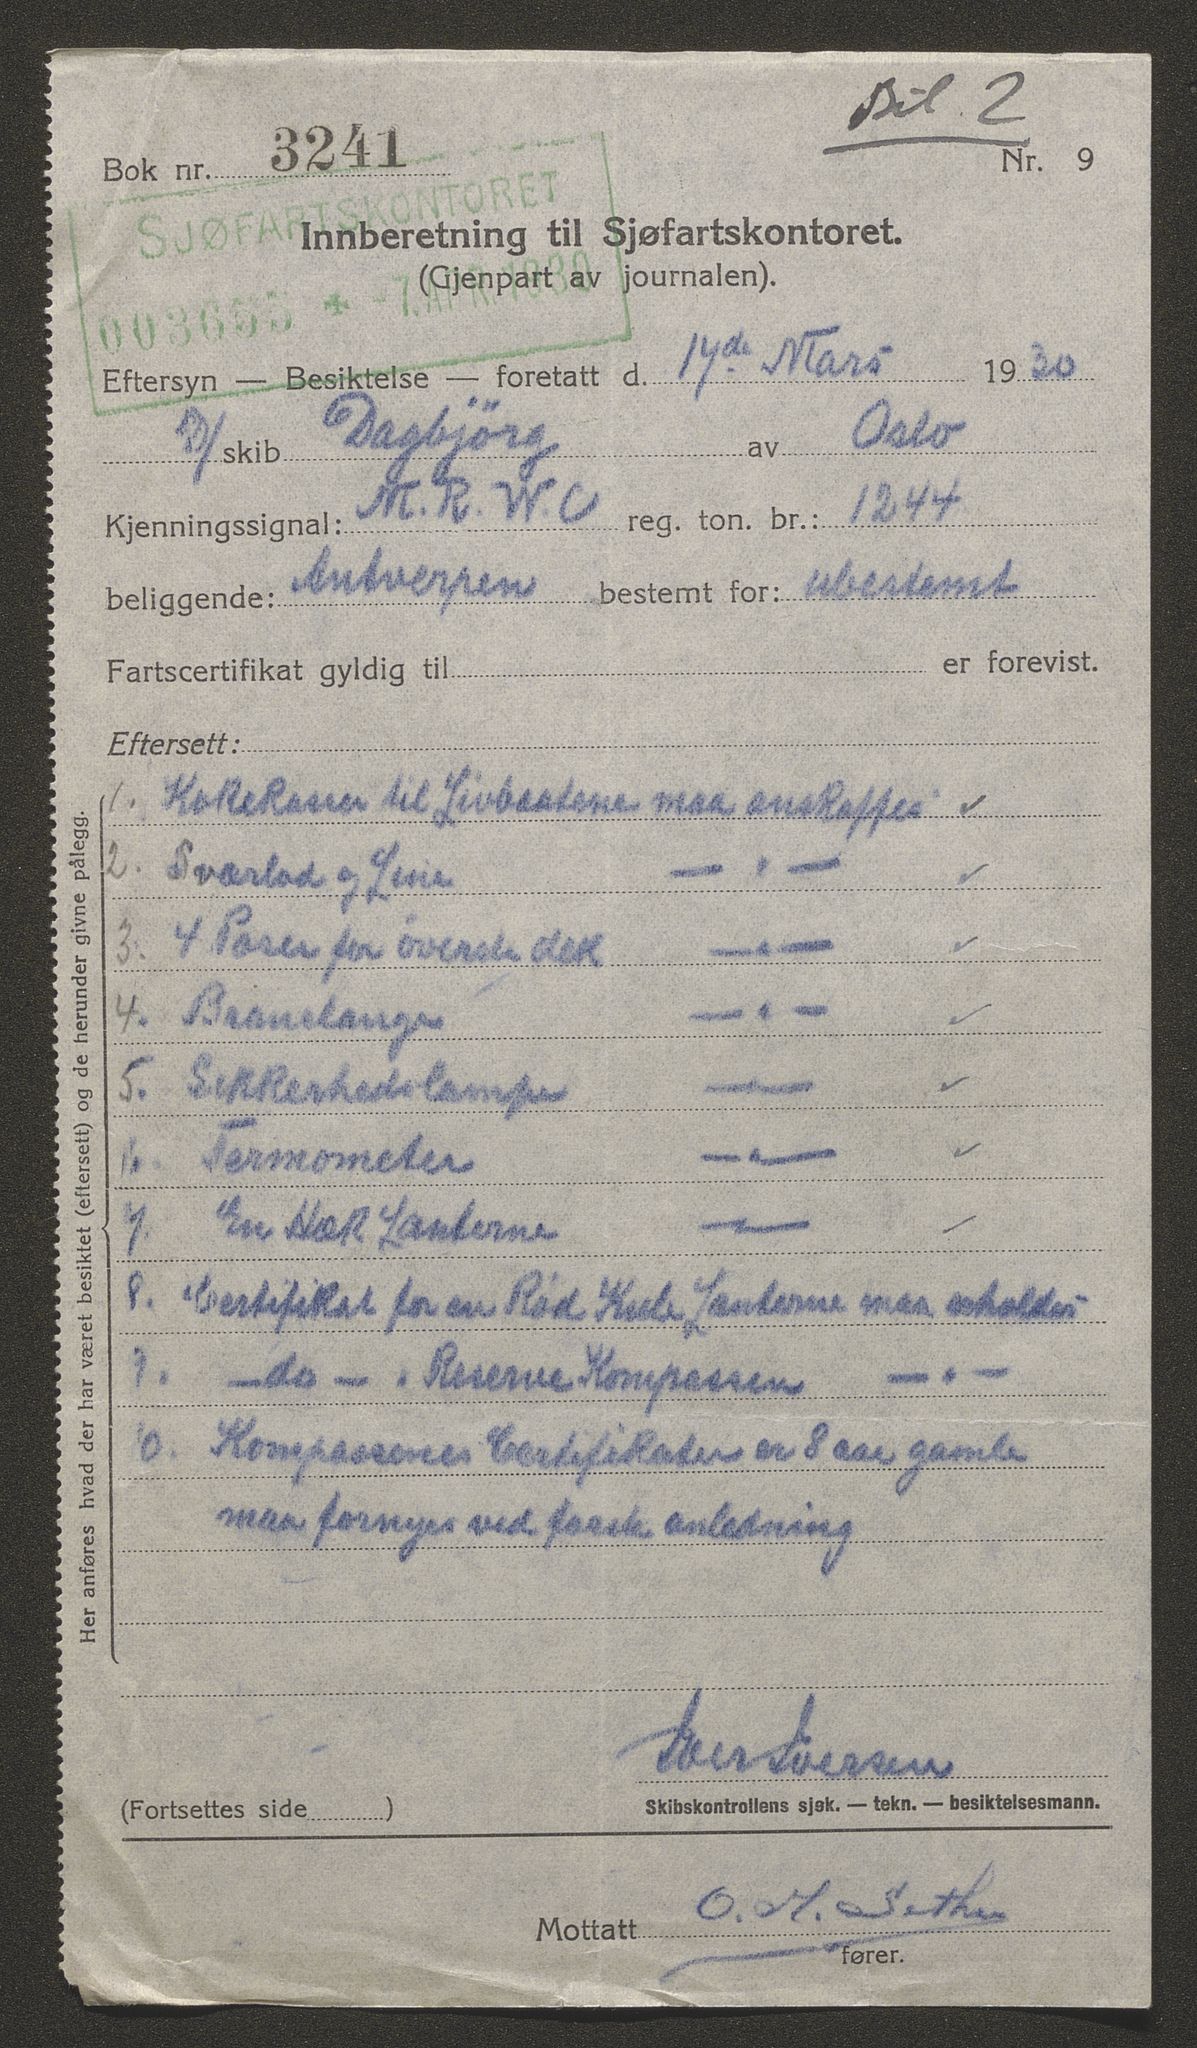 Bil. 2
Bok nr. 3241
Nr. 9
SJØFARTSKONTORET
003665 * -7.APR.1930
Innberetning til Sjøfartskontoret.
(Gjenpart av journalen).
Eftersyn — Besiktelse — foretatt d. 17de Mars 1930
D/skib Dagbjörg av Oslo
Kjenningssignal: M.R.W.C reg. ton. br.: 1244
beliggende: Antverpen bestemt for: ubestemt
Fartscertifikat gyldig til er forevist.
Eftersett:
Her anføres hvad der har været besiktet (eftersett) og de herunder givne pålegg.
1. Kokekasser til Livbaatene maa anskaffes ✓
2. Sværlod og Line — " — ✓
3. 4 Pøser for överste dek — " — ✓
4. Branslange — " — ✓
5. Sikkerhedslampe — " — ✓
6. Termometer — " — ✓
7. En Hæk Lanterne — " — ✓
8. Certifikat for en Rød Kule Lanterne maa erholdes
9. — do — " Reserve Kompassen — " —
10. Kompassenes Certifikater er 8 aar gamle
maa fornyes ved første anledning
Iver Iversen
(Fortsettes side )
Skibskontrollens sjøk. — tekn. — besiktelsesmann.
Mottatt O. M. Sethre
fører.